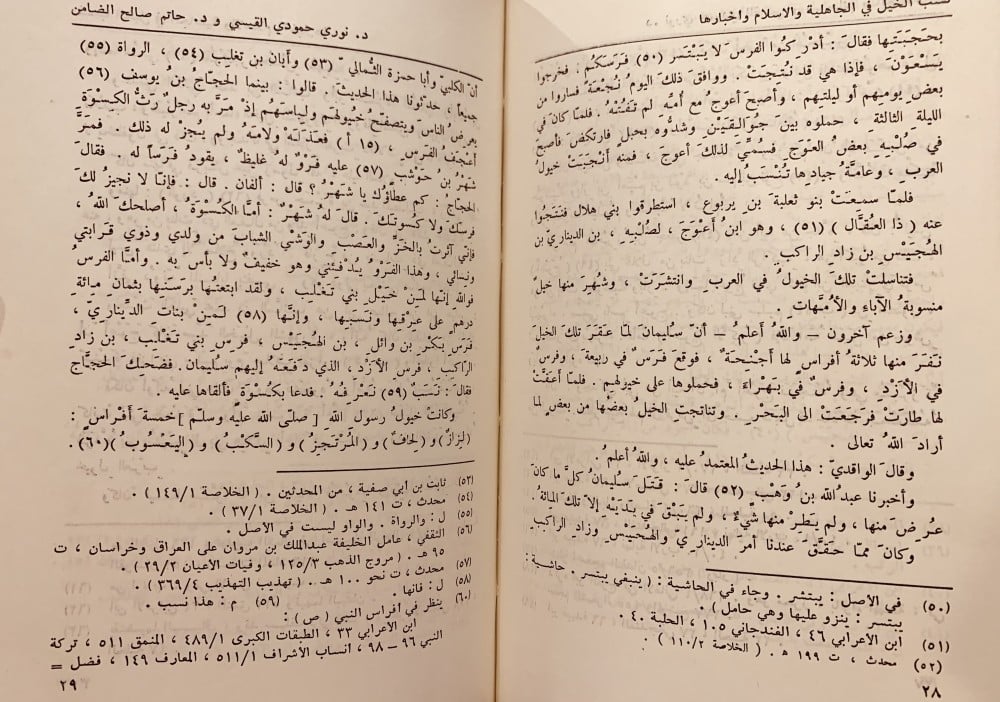 نسب الخيل في الجاهلية والاسلام واخبارها
بحجبتها فقال : أدركوا الفرس لا يبتسر (٥٠) فرسكم . فخرجوا
يسعون ، فإذا هي قد نتجت . ووافق ذلك اليوم نجعة فساروا من
بعض يومهم أو ليلتهم ، وأصبح أعوج مع أمه لم تفته . فلما كان في
الليلة الثالثة ، حملوه بين جوالقين وشدوه بحبل فارتكض فأصبح
في صلبه بعض العوج فسمي لذلك أعوج ، فمنه أنجبت خيول
العرب ، وعامة جيادها تنسب إليه .
فلما سمعت بنو ثعلبة بن يربوع ، استطرقوا بني هلال فنتجوا
عنه ( ذا العقال ) (٥١) ، وهو ابن أعوج ، لصلبه ، بن الديناري بن
الهجيس بن زاد الراكب .
فتناسلت تلك الخيول في العرب وانتشرت ، وشهر منها خيل
منسوبة الآباء والأمهات .
وزعم آخرون — والله أعلم — أن سليمان لما عقر تلك الخيل
نفر منها ثلاثة أفراس لها أجنحة ، فوقع فرس في ربيعة ، وفرس
في الأزد ، وفرس في بهراء ، فحملوها على خيولهم . فلما أعقت
لها طارت فرجعت الى البحر . وتناتجت الخيل بعضها من بعض لما
أراد الله تعالى .
وقال الواقدي : هذا الحديث المعتمد عليه ، والله أعلم .
وأخبرنا عبدالله بن وهب (٥٢) قال : قتل سليمان كل ما كان
عرض منها ، ولم يطر منها شيء ، ولم يبق في يديه إلا تلك المائة .
وكان مما حقق عندنا أمر الديناري والهجيس وزاد الراكب
(٥٠) في الأصل : يبتشر . وجاء في الحاشية : ( ينبغي يبتسر . حاشية :
يبتسر : ينزو عليها وهي حامل ) .
(٥١) ابن الأعرابي ٤٦ ، الغندجاني ١٠٥ ، الحلبة ٤٠ .
(٥٢) محدث ، ت ١٩٩ هـ . ( الخلاصة ١١٠/٢ )
٢٨
د. نوري حمودي القيسي و د. حاتم صالح الضامن
أن الكلبي وأبا حمزة الثمالي (٥٣) وأبان بن تغليب (٥٤) ، الرواة (٥٥)
جميعا ، حدثونا هذا الحديث . قالوا : بينما الحجاج بن يوسف (٥٦)
يعرض الناس ويتصفح خيولهم ولباسهم إذ مر به رجل رث الكسوة
أعجف الفرس ، (١٥ أ) فعذله ولامه ولم يجز له ذلك . فمر
شهر بن حوشب (٥٧) عليه فرو له غليظ ، يقود فرسا له . فقال
الحجاج : كم عطاؤك يا شهر ؟ قال : ألفان . قال : فإنا لا نجيز لك
فرسك ولا كسوتك . قال له شهر : أما الكسوة ، أصلحك الله ،
فإني آثرت بالخز والعصب والوشي الشباب من ولدي وذوي قرابتي
ونسائي ، وهذا الفرو يدفئني وهو خفيف ولا بأس به . وأما الفرس
فوالله إنها لمن خيل بني تغلب ، ولقد ابتعتها برسنها بثمان مائة
درهم على عرقها ونسبها ، وإنها (٥٨) لمن بنات الديناري ،
فرس بكر بن وائل ، بن الهجيس ، فرس بني تغلب ، بن زاد
الراكب ، فرس الأزد ، الذي دفعه إليهم سليمان . فضحك الحجاج
فقال : نسب (٥٩) نعرفه . فدعا بكسوة فألقاها عليه .
وكانت خيول رسول الله [ صلى الله عليه وسلم ] خمسة أفراس :
(لزاز) و (لحاف) و (المرتجز) و (السكب) و (اليعسوب) (٦٠) .
(٥٣) ثابت بن أبي صفية ، من المحدثين . ( الخلاصة ١٤٩/١ ) .
(٥٤) محدث ، ت ١٤١ هـ . ( الخلاصة ٣٧/١ ) .
(٥٥) ل : والرواة . والواو ليست في الأصل .
(٥٦) الثقفي ، عامل الخليفة عبدالملك بن مروان على العراق وخراسان ، ت
٩٥ هـ . ( مروج الذهب ١٢٥/٣ ، وفيات الأعيان ٢٩/٢ ) .
(٥٧) محدث ، ت نحو ١٠٠ هـ . ( تهذيب التهذيب ٣٦٩/٤ ) .
(٥٨) ل : فانها . (٥٩) م : هذا نسب .
(٦٠) ينظر في أفراس النبي ( ص ) :
ابن الأعرابي ٣٣ ، الطبقات الكبرى ٤٨٩/١ ، المنمق ٥١١ ، تركة
النبي ٩٦ — ٩٨ ، انساب الأشراف ٥١١/١ ، المعارف ١٤٩ ، فضل =
٢٩